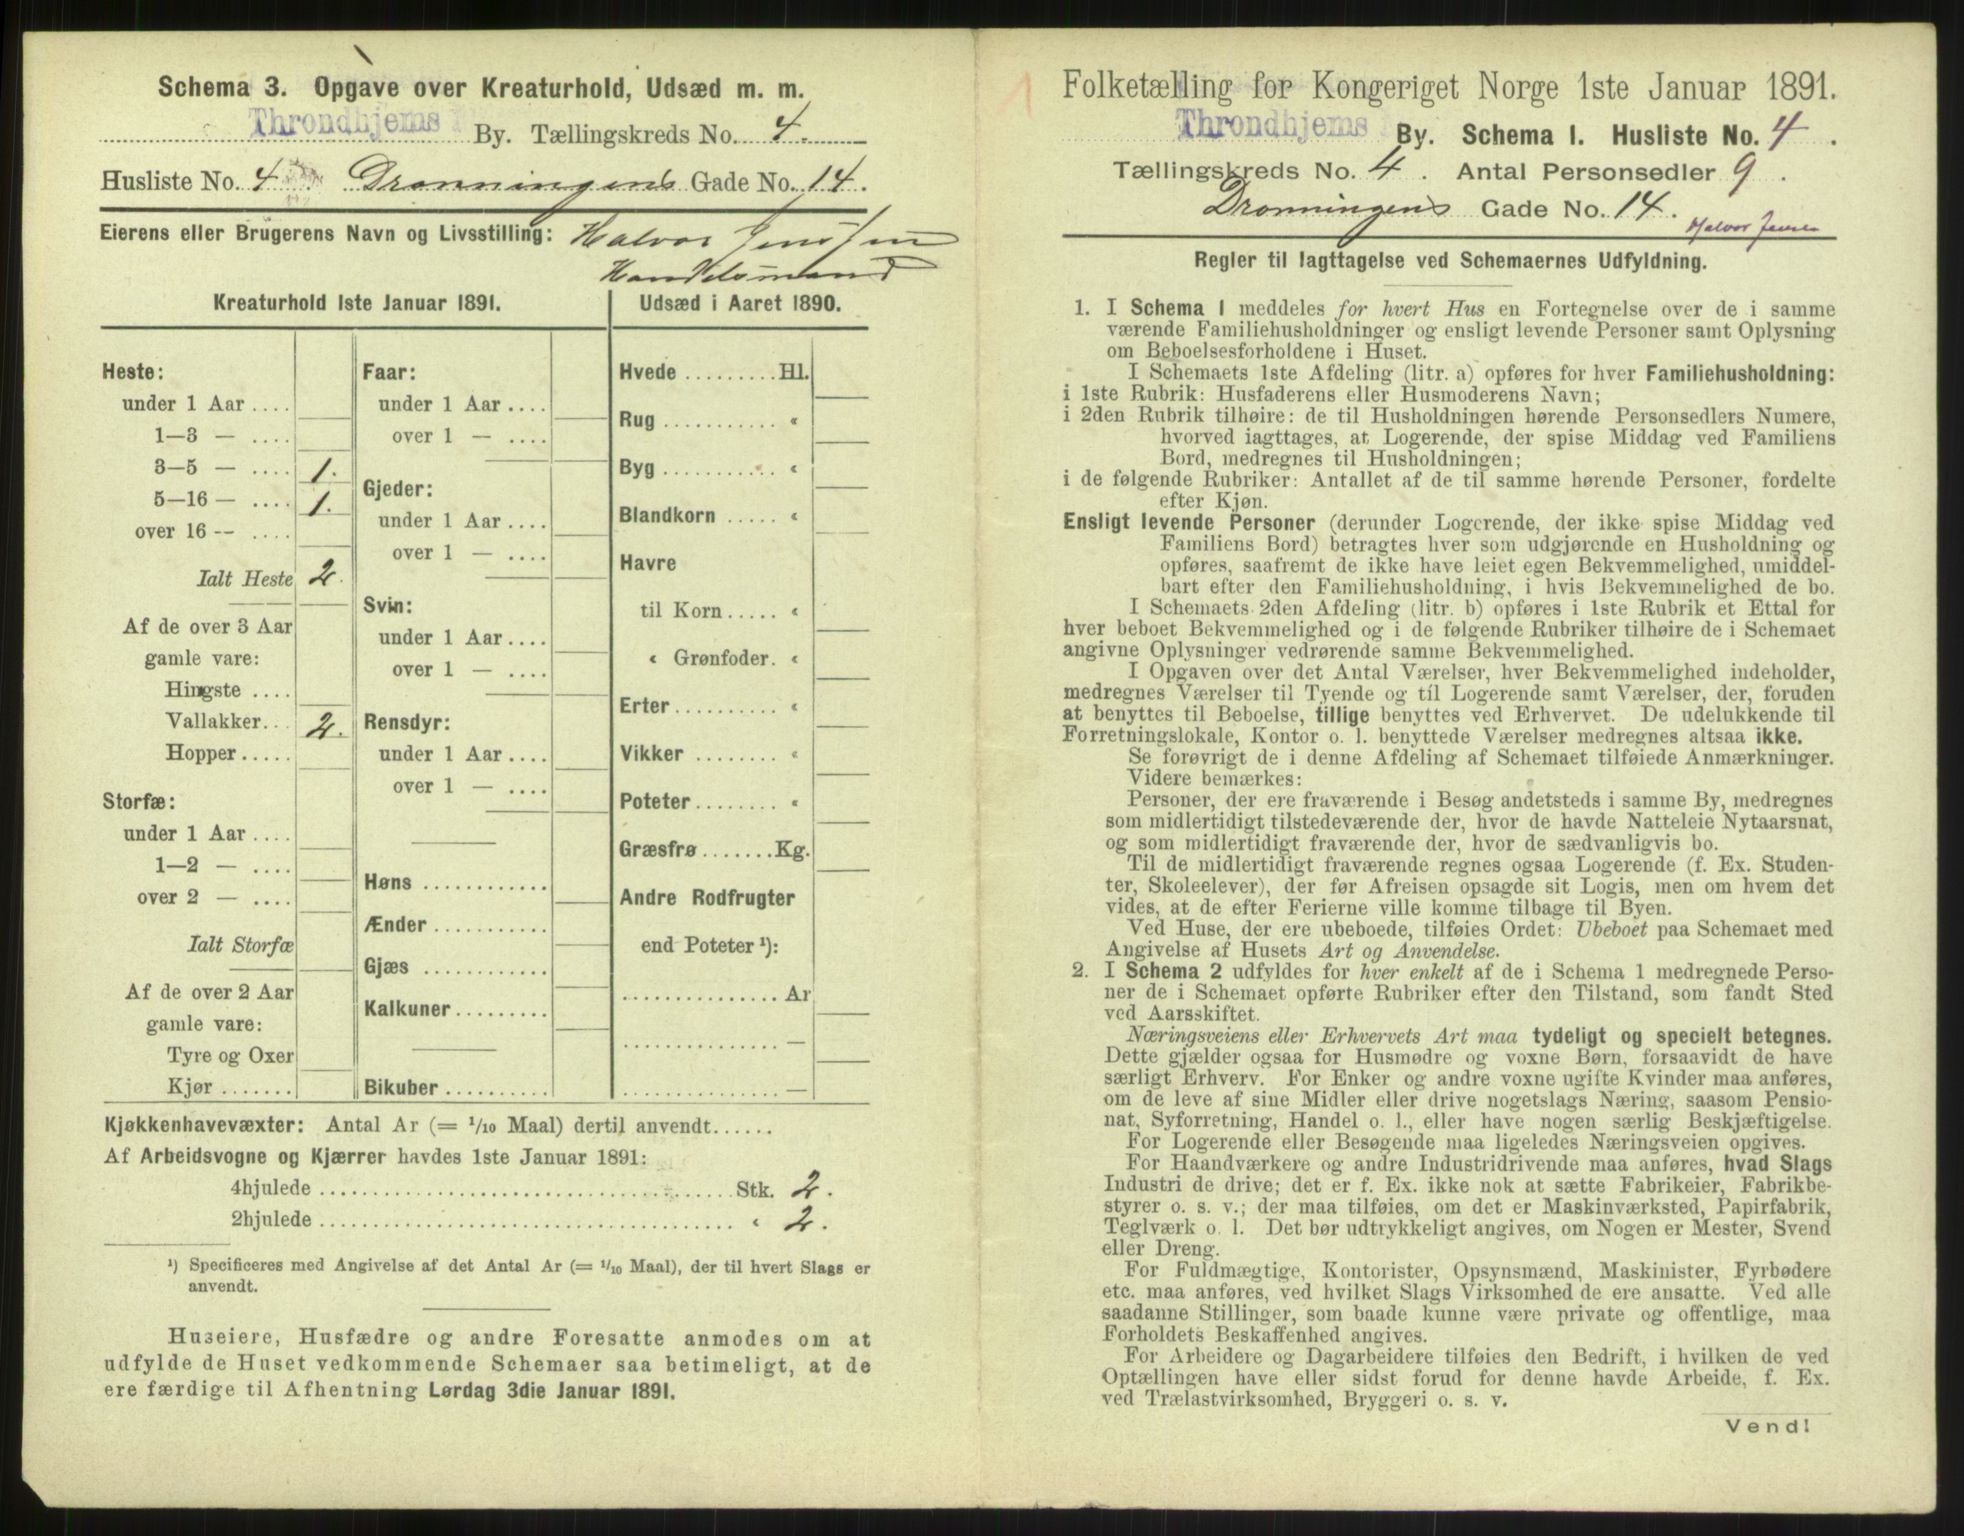 Schema 3. Opgave over Kreaturhold, Udsæd m. m.
Throndhjems By. Tællingskreds No. 4.
Husliste No. 4. Dronningens Gade No. 14.
Eierens eller Brugerens Navn og Livsstilling: Halvor Jenssen
Handelsmand
Kreaturhold 1ste Januar 1891.
Heste:
under 1 Aar ....
1—3 — ....
3—5 — .... 1.
5—16 — .... 1.
over 16 — ....
Ialt Heste 2.
Af de over 3 Aar
gamle vare:
Hingste ....
Vallakker... 2.
Hopper.....
Storfæ:
under 1 Aar ....
1—2 — ....
over 2 — ....
Ialt Storfæ
Af de over 2 Aar
gamle vare:
Tyre og Oxer
Kjør .......
Faar:
under 1 Aar ....
over 1 — ....
Gjeder:
under 1 Aar ....
over 1 — ....
Svin:
under 1 Aar ....
over 1 — ....
Rensdyr:
under 1 Aar ....
over 1 — ....
Høns ............
Ænder ...........
Gjæs ............
Kalkuner.........
Bikuber ..........
Udsæd i Aaret 1890.
Hvede .........Hl.
Rug ........... «
Byg ........... «
Blandkorn ..... «
Havre
til Korn ..... «
« Grønfoder. «
Erter .......... «
Vikker ........ «
Poteter ........ «
Græsfrø .......Kg.
Andre Rodfrugter
end Poteter ¹):
............... Ar
............... —
............... —
Kjøkkenhavevæxter: Antal Ar (= 1/10 Maal) dertil anvendt......
Af Arbeidsvogne og Kjærrer havdes 1ste Januar 1891:
4hjulede ........................................ Stk. 2.
2hjulede ........................................ « 2.
¹) Specificeres med Angivelse af det Antal Ar (= 1/10 Maal), der til hvert Slags er
anvendt.
Huseiere, Husfædre og andre Foresatte anmodes om at
udfylde de Huset vedkommende Schemaer saa betimeligt, at de
ere færdige til Afhentning Lørdag 3die Januar 1891.
1
Folketælling for Kongeriget Norge 1ste Januar 1891.
Throndhjems By. Schema I. Husliste No. 4.
Tællingskreds No. 4. Antal Personsedler 9.
Dronningens Gade No. 14.
Halvor Jensen
Regler til Iagttagelse ved Schemaernes Udfyldning.
1. I Schema I meddeles for hvert Hus en Fortegnelse over de i samme
værende Familiehusholdninger og ensligt levende Personer samt Oplysning
om Beboelsesforholdene i Huset.
I Schemaets 1ste Afdeling (litr. a) opføres for hver Familiehusholdning:
i 1ste Rubrik: Husfaderens eller Husmoderens Navn;
i 2den Rubrik tilhøire: de til Husholdningen hørende Personsedlers Numere,
hvorved iagttages, at Logerende, der spise Middag ved Familiens
Bord, medregnes til Husholdningen;
i de følgende Rubriker: Antallet af de til samme hørende Personer, fordelte
efter Kjøn.
Ensligt levende Personer (derunder Logerende, der ikke spise Middag ved
Familiens Bord) betragtes hver som udgjørende en Husholdning og
opføres, saafremt de ikke have leiet egen Bekvemmelighed, umiddel-
bart efter den Familiehusholdning, i hvis Bekvemmelighed de bo.
I Schemaets 2den Afdeling (litr. b) opføres i 1ste Rubrik et Ettal for
hver beboet Bekvemmelighed og i de følgende Rubriker tilhøire de i Schemaet
angivne Oplysninger vedrørende samme Bekvemmelighed.
I Opgaven over det Antal Værelser, hver Bekvemmelighed indeholder,
medregnes Værelser til Tyende og til Logerende samt Værelser, der, foruden
at benyttes til Beboelse, tillige benyttes ved Erhvervet. De udelukkende til
Forretningslokale, Kontor o. l. benyttede Værelser medregnes altsaa ikke.
Se forøvrigt de i denne Afdeling af Schemaet tilføiede Anmærkninger.
Videre bemærkes:
Personer, der ere fraværende i Besøg andetsteds i samme By, medregnes
som midlertidigt tilstedeværende der, hvor de havde Natteleie Nytaarsnat,
og som midlertidigt fraværende der, hvor de sædvanligvis bo.
Til de midlertidigt fraværende regnes ogsaa Logerende (f. Ex. Studen-
ter, Skoleelever), der før Afreisen opsagde sit Logis, men om hvem det
vides, at de efter Ferierne ville komme tilbage til Byen.
Ved Huse, der ere ubeboede, tilføies Ordet: Ubeboet paa Schemaet med
Angivelse af Husets Art og Anvendelse.
2. I Schema 2 udfyldes for hver enkelt af de i Schema 1 medregnede Perso-
ner de i Schemaet opførte Rubriker efter den Tilstand, som fandt Sted
ved Aarsskiftet.
Næringsveiens eller Erhvervets Art maa tydeligt og specielt betegnes.
Dette gjælder ogsaa for Husmødre og voxne Børn, forsaavidt de have
særligt Erhverv. For Enker og andre voxne ugifte Kvinder maa anføres,
om de leve af sine Midler eller drive nogetslags Næring, saasom Pensio-
nat, Syforretning, Handel o. l., eller have nogen særlig Beskjæftigelse.
For Logerende eller Besøgende maa ligeledes Næringsveien opgives.
For Haandværkere og andre Industridrivende maa anføres, hvad Slags
Industri de drive; det er f. Ex. ikke nok at sætte Fabrikeier, Fabrikbe-
styrer o. s. v.; der maa tilføies, om det er Maskinværksted, Papirfabrik,
Teglværk o. l. Det bør udtrykkeligt angives, om Nogen er Mester, Svend
eller Dreng.
For Fuldmægtige, Kontorister, Opsynsmænd, Maskinister, Fyrbødere
etc. maa anføres, ved hvilket Slags Virksomhed de ere ansatte. Ved alle
saadanne Stillinger, som baade kunne være private og offentlige, maa
Forholdets Beskaffenhed angives.
For Arbeidere og Dagarbeidere tilføies den Bedrift, i hvilken de ved
Optællingen have eller sidst forud for denne havde Arbeide, f. Ex.
ved Trælastvirksomhed, Bryggeri o. s. v.
Vend!